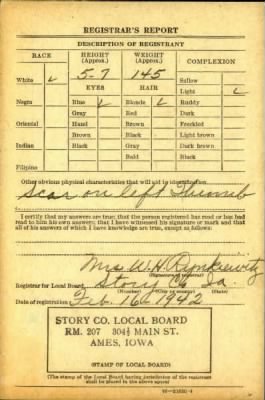 REGISTRAR'S REPORT
DESCRIPTION OF REGISTRANT
RACE HEIGHT (Approx.) WEIGHT (Approx.) COMPLEXION
White ✓ 5-7 145 Sallow
EYES HAIR Light ✓
Negro Blue ✓ Blonde ✓ Ruddy
Gray Red Dark
Oriental Hazel Brown Freckled
Brown Black Light brown
Indian Black Gray Dark brown
Bald Black
Filipino
Other obvious physical characteristics that will aid in identification
Scar on left Thumb
I certify that my answers are true; that the person registered has read or has had
read to him his own answers; that I have witnessed his signature or mark and that
all of his answers of which I have knowledge are true, except as follows:
Mrs W. H.
(Signature of registrar)
Registrar for Local Board Story Co. Ia.
(Number) (City or county) (State)
Date of registration Feb. 16 1942
STORY CO. LOCAL BOARD
RM. 207 304½ MAIN ST.
AMES, IOWA
(STAMP OF LOCAL BOARD)
(The stamp of the Local Board having jurisdiction of the registrant
shall be placed in the above space)